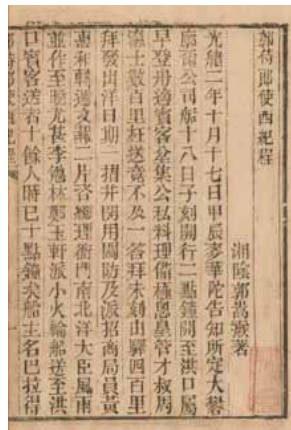 郭侍郎使西紀程
湘陰郭嵩燾著
光緒二年十月十七日甲辰麥華陀告知所定大礬
廓爾公司船十八日子刻開行二點鐘開至洪口屬
早登舟適賓客坌集公私料理備極悤皇管才叔周
瀛士數百里枉送竟不及一答拜未刻由驛四百里
拜發出洋日期一摺并開用關防及派招商局員黃
惠和轉遞文報二片咨總理衙門南北洋大臣風雨
並作至晚尤甚李勉林鄭玉軒派小火輪船送至洪
口賓客送者十餘人時已十點鐘矣船主名巴拉得